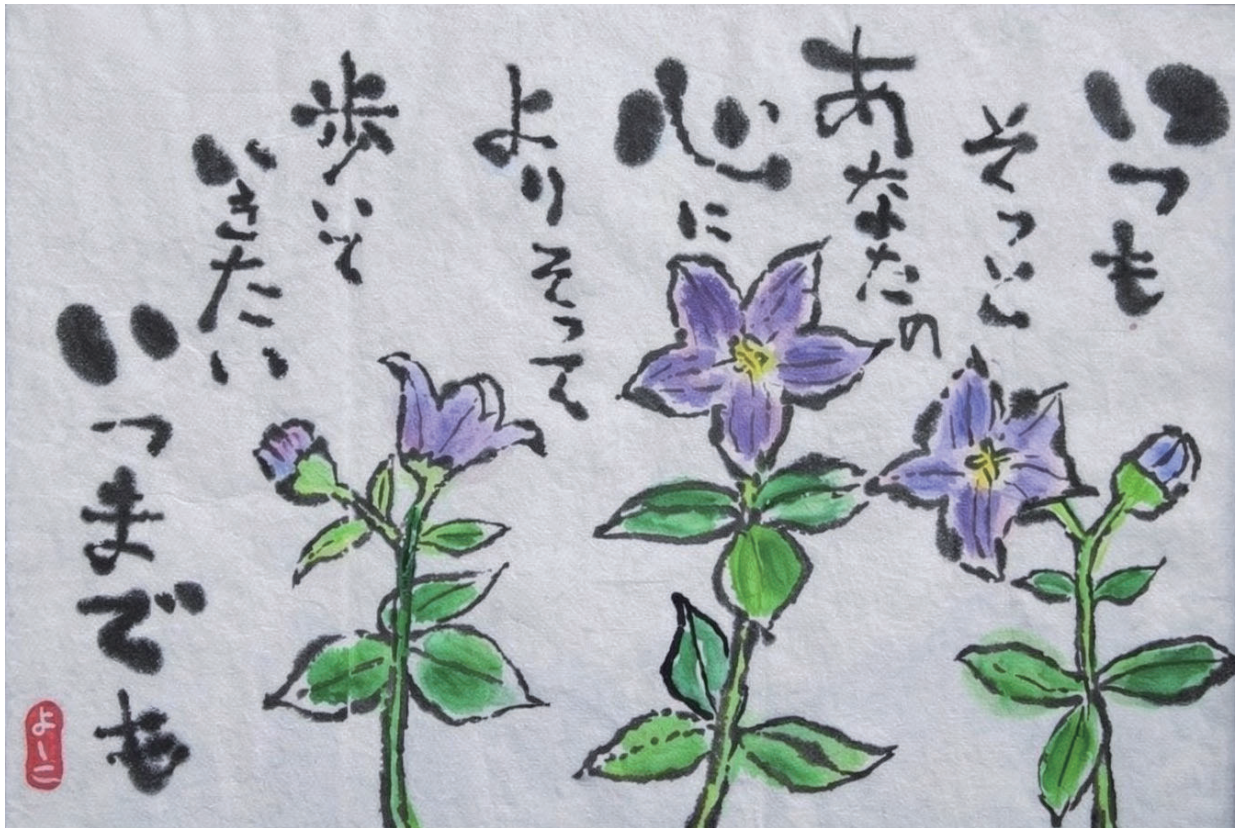 いつも
そっと
あなたの
心に
よりそって
歩いて
いきたい
いつまでも
よーこ